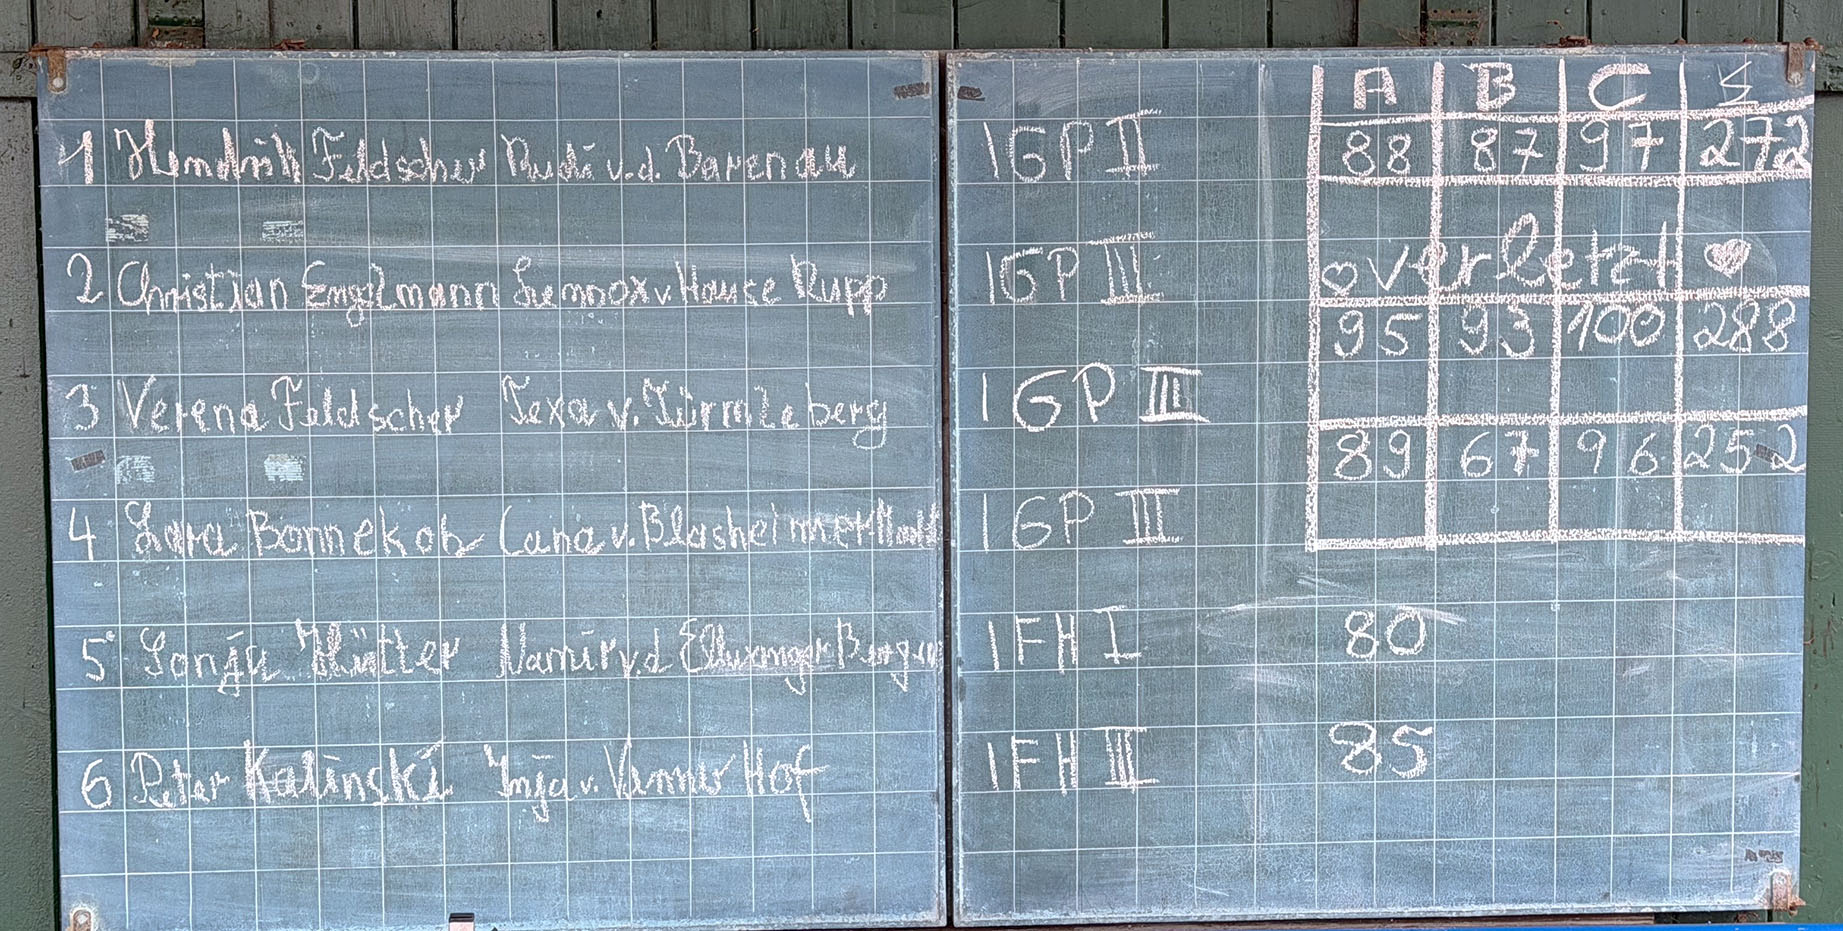 A B C S
1 Hendrik Feldscher Rudi v.d. Barenau IGP II 88 87 97 272
2 Christian Engelmann Lennox v. Hause Rupp IGP III verletzt
3 Verena Feldscher Texa v. Türmleberg IGP III 95 93 100 288
4 Lara Bonnekoh Cana v. Blasheimer IGP III 89 67 96 252
5 Sonja Hütter Namir v.d. IFH I 80
6 Peter Kalinski Inja v. Venner Hof IFH II 85